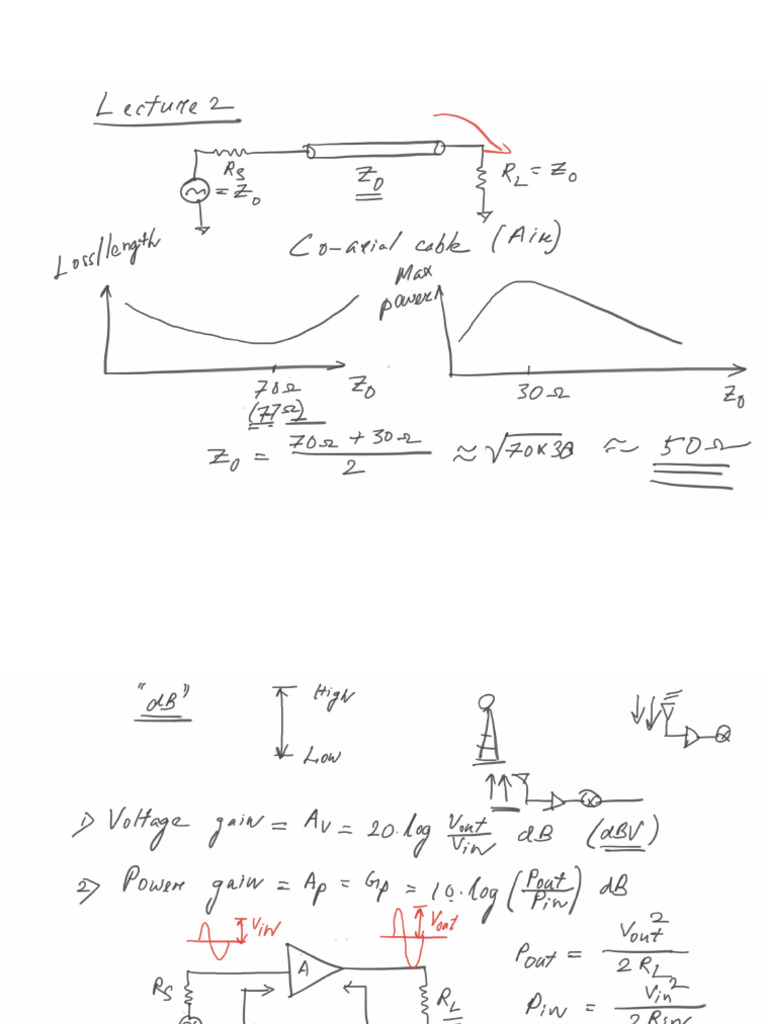 Lecture 2
R_S
= Z_0
Z_0
R_L = Z_0
Co-axial cable (Air)
Loss/length
70Ω
(77Ω)
Z_0
Max
power
30Ω
Z_0
Z_0 = (70Ω + 30Ω) / 2 ≈ √(70×30) ≈ 50Ω
"dB"
High
Low
1) Voltage gain = A_V = 20·log V_out / V_in dB (dBV)
2) Power gain = A_p = G_p = 10·log (P_out / P_in) dB
V_in
V_out
R_S
A
R_L
P_out = V_out² / 2 R_L
P_in = V_in² / 2 R_in